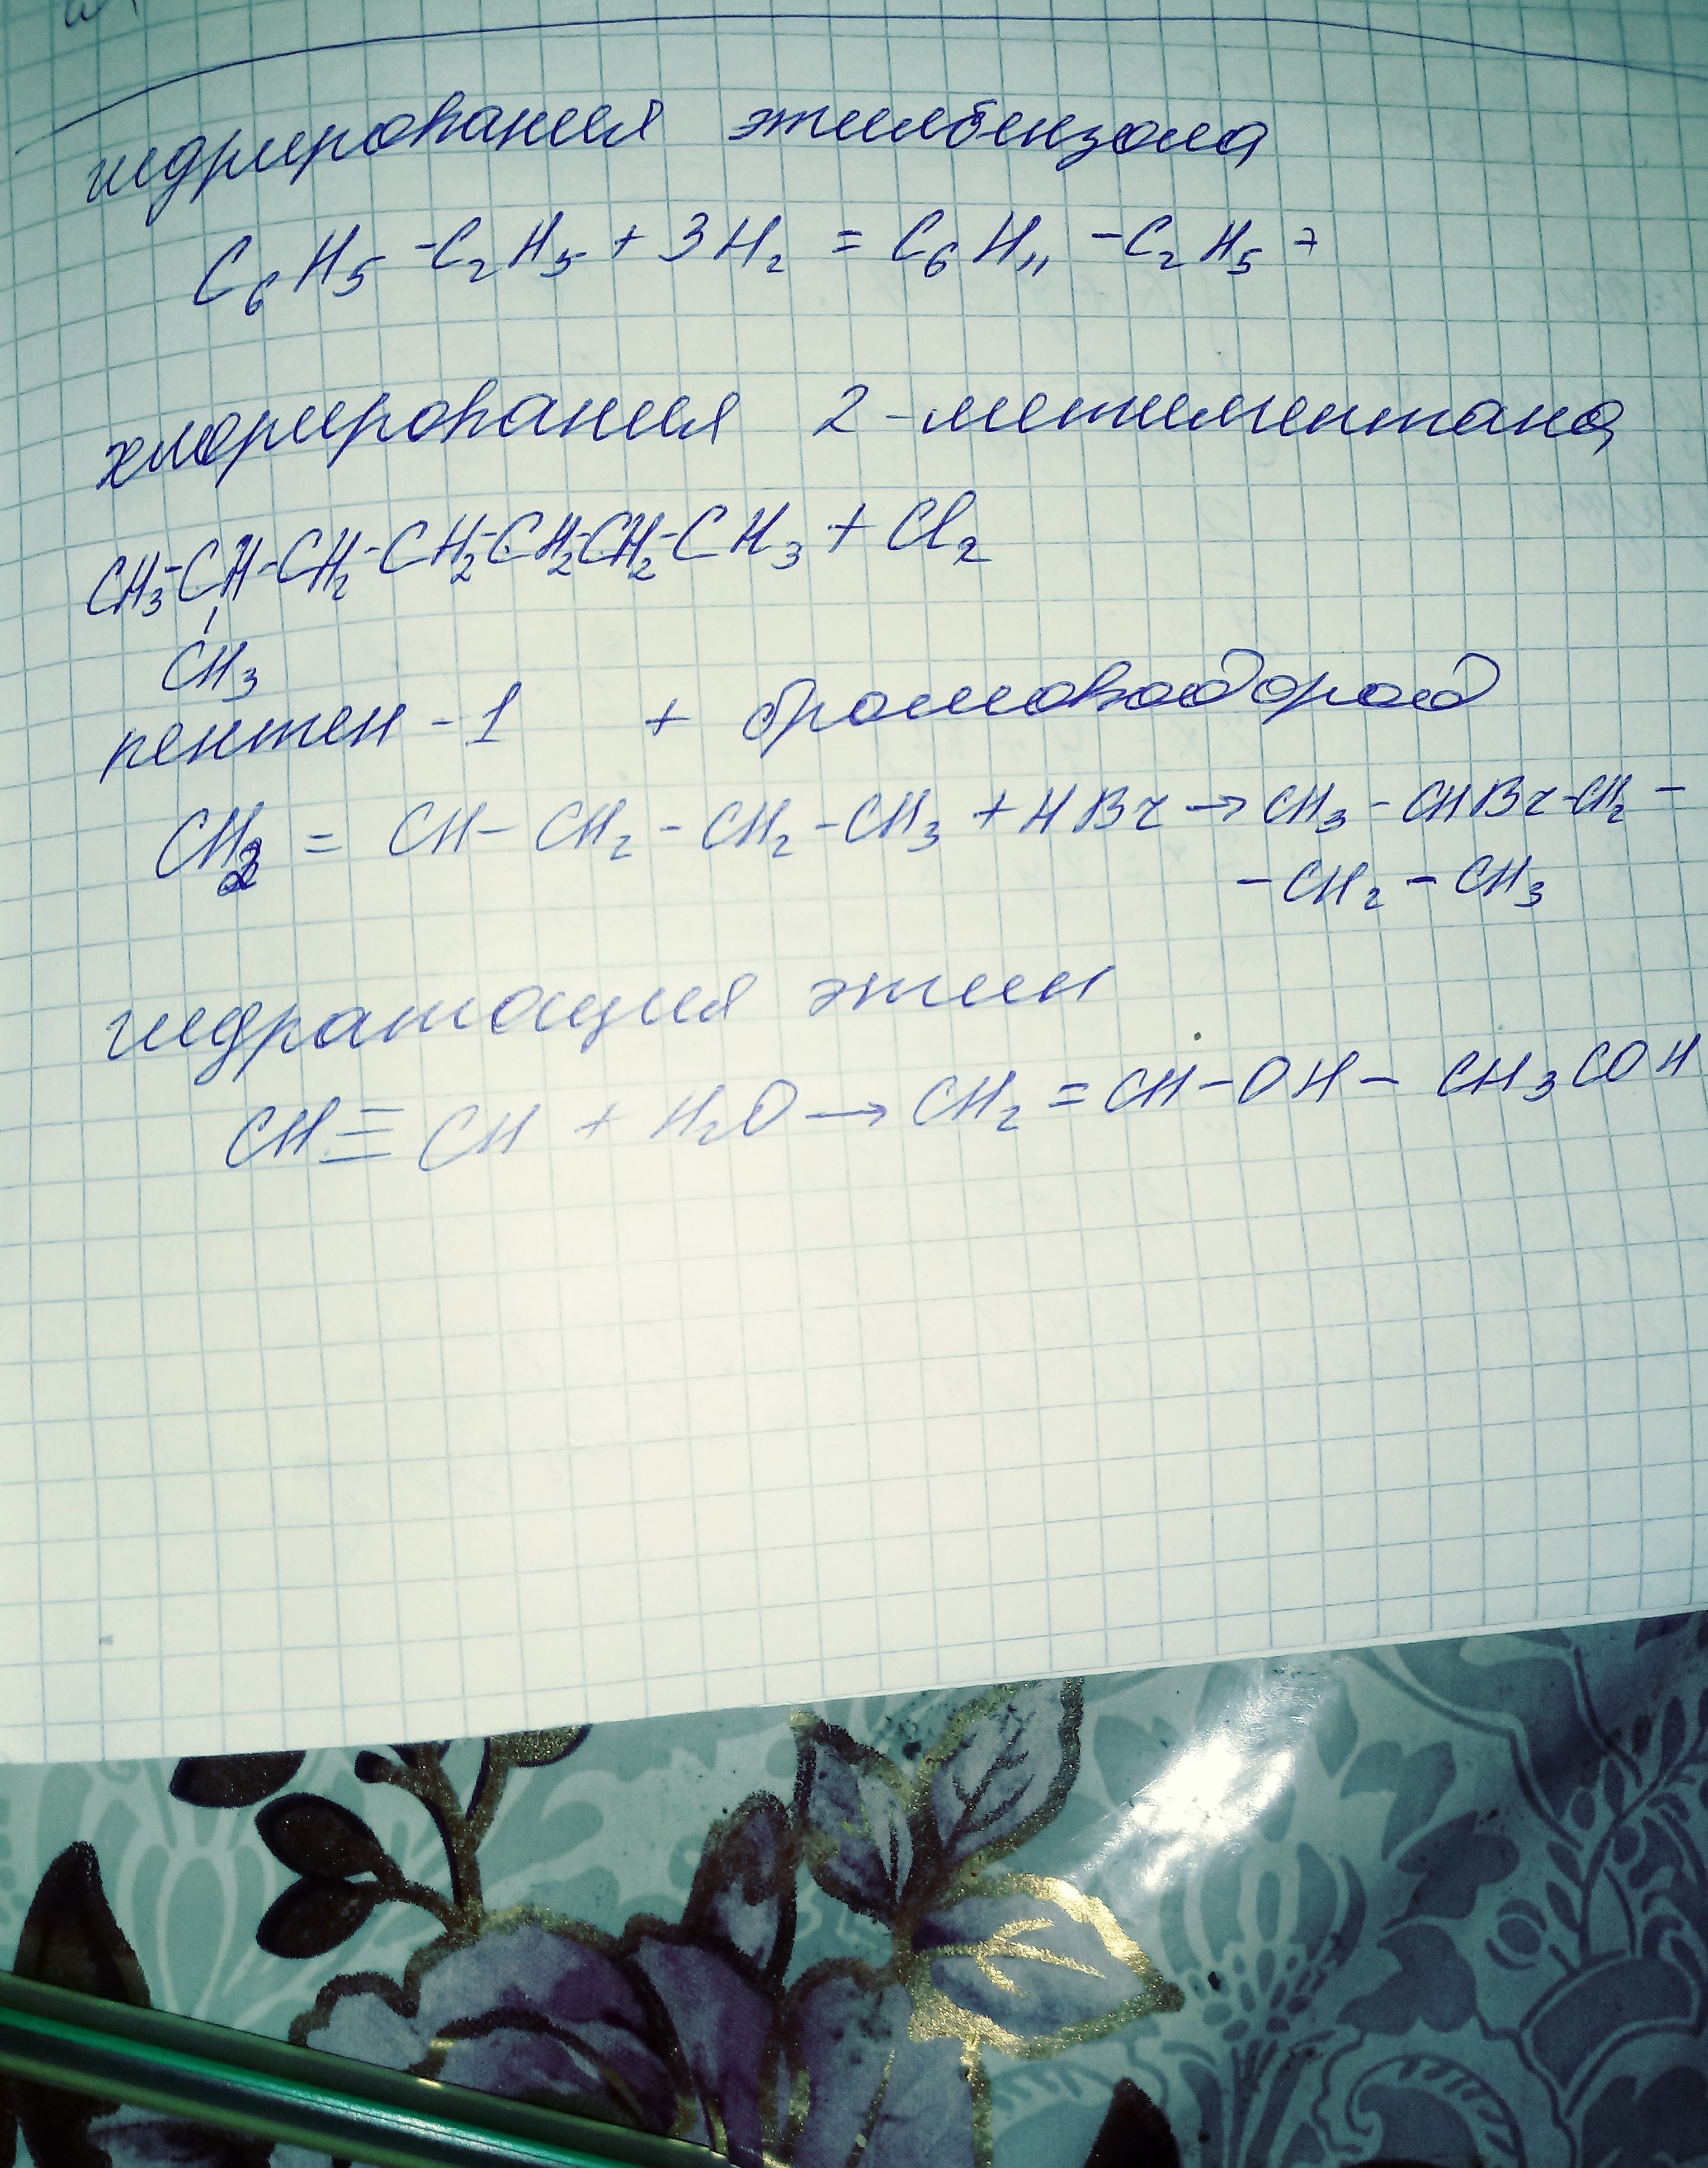 гидрирования этилбензола
C₆H₅-C₂H₅ + 3H₂ = C₆H₁₁-C₂H₅ +
хлорирования 2-метилпентана
CH₃-CH-CH₂-CH₂-CH₂-CH₂-CH₃ + Cl₂
CH₃
пентен-1 + бромоводород
CH₂ = CH-CH₂-CH₂-CH₃ + HBr → CH₃-CHBr-CH₂-
-CH₂-CH₃
гидратация этин
CH≡CH + H₂O → CH₂=CH-OH-CH₃COH